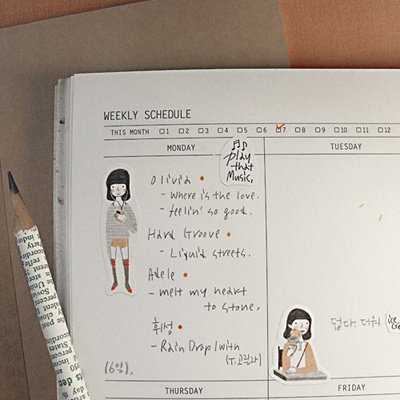 WEEKLY SCHEDULE
THIS MONTH 1 2 3 4 5 6 7 8 9 10 11 12
MONDAY
TUESDAY
play
that
Music,
Olivia
- Where is the love.
- feelin' so good.
Hard Groove
- Liquid streets.
Adele
- melt my heart
to stone,
휘성
- Rain Drop |with
(6일).
덥다. 더워
ice
THURSDAY
FRIDAY